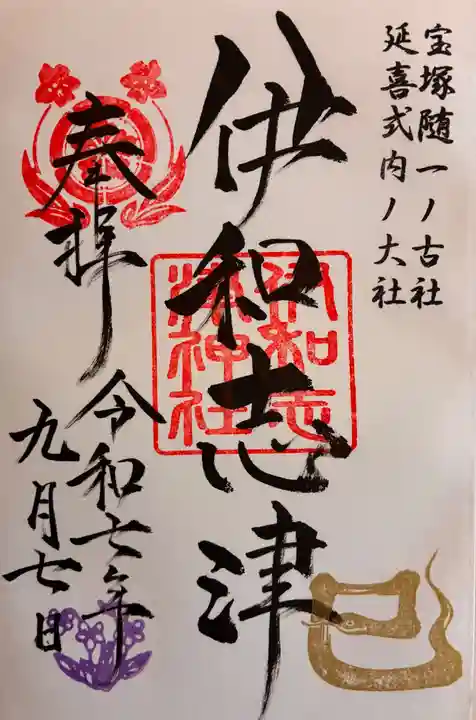 宝塚随一ノ古社
延喜式内ノ大社
伊和志津
伊和志
津神社
奉拝
令和七年
九月七日
巳